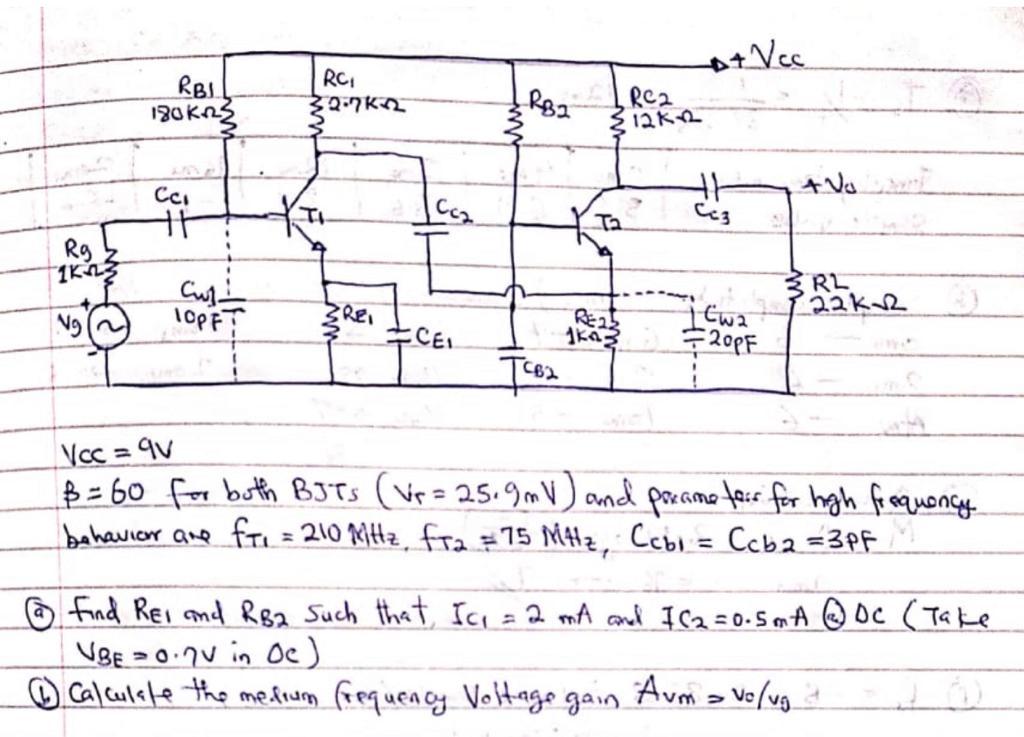 + Vcc
RB1
180KΩ
RC1
2.7KΩ
RB2
RC2
12KΩ
CC1
T1
CC2
T2
CC3
+ Vo
Rg
1KΩ
+
Vg
-
Cw1
10PF
RE1
CE1
CB2
RE2
1KΩ
Cw2
20PF
RL
22KΩ
Vcc = 9V
β = 60 for both BJTs (VT = 25.9mV) and parameters for high frequency
behavior are fT1 = 210 MHz, fT2 = 75 MHz, Ccb1 = Ccb2 = 3PF
(a) find RE1 and RB2 such that, IC1 = 2 mA and IC2 = 0.5mA @ DC (Take
VBE = 0.7V in DC)
(b) Calculate the medium frequency Voltage gain Avm = vo/vg